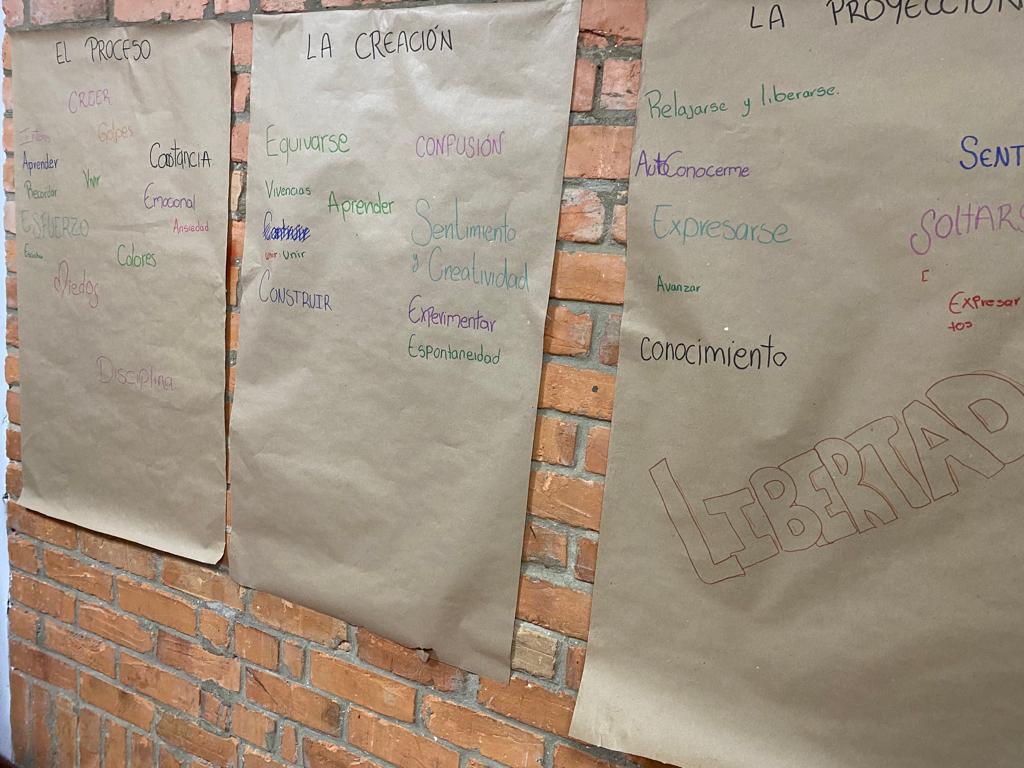 EL PROCESO
CREER
Golpes
Aprender
Constancia
Recordar
Vivir
Emocional
ESFUERZO
Ansiedad
Colores
Miedos
Disciplina
LA CREACIÓN
Equivarse
CONFUSIÓN
Vivencias
Aprender
Sentimiento
y Creatividad
unir unir
CONSTRUIR
Experimentar
Espontaneidad
LA PROYECCIÓN
Relajarse y liberarse.
AutoConocerme
SENT
Expresarse
SOLTARS
Avanzar
Expresar
tos
Conocimiento
LIBERTAD